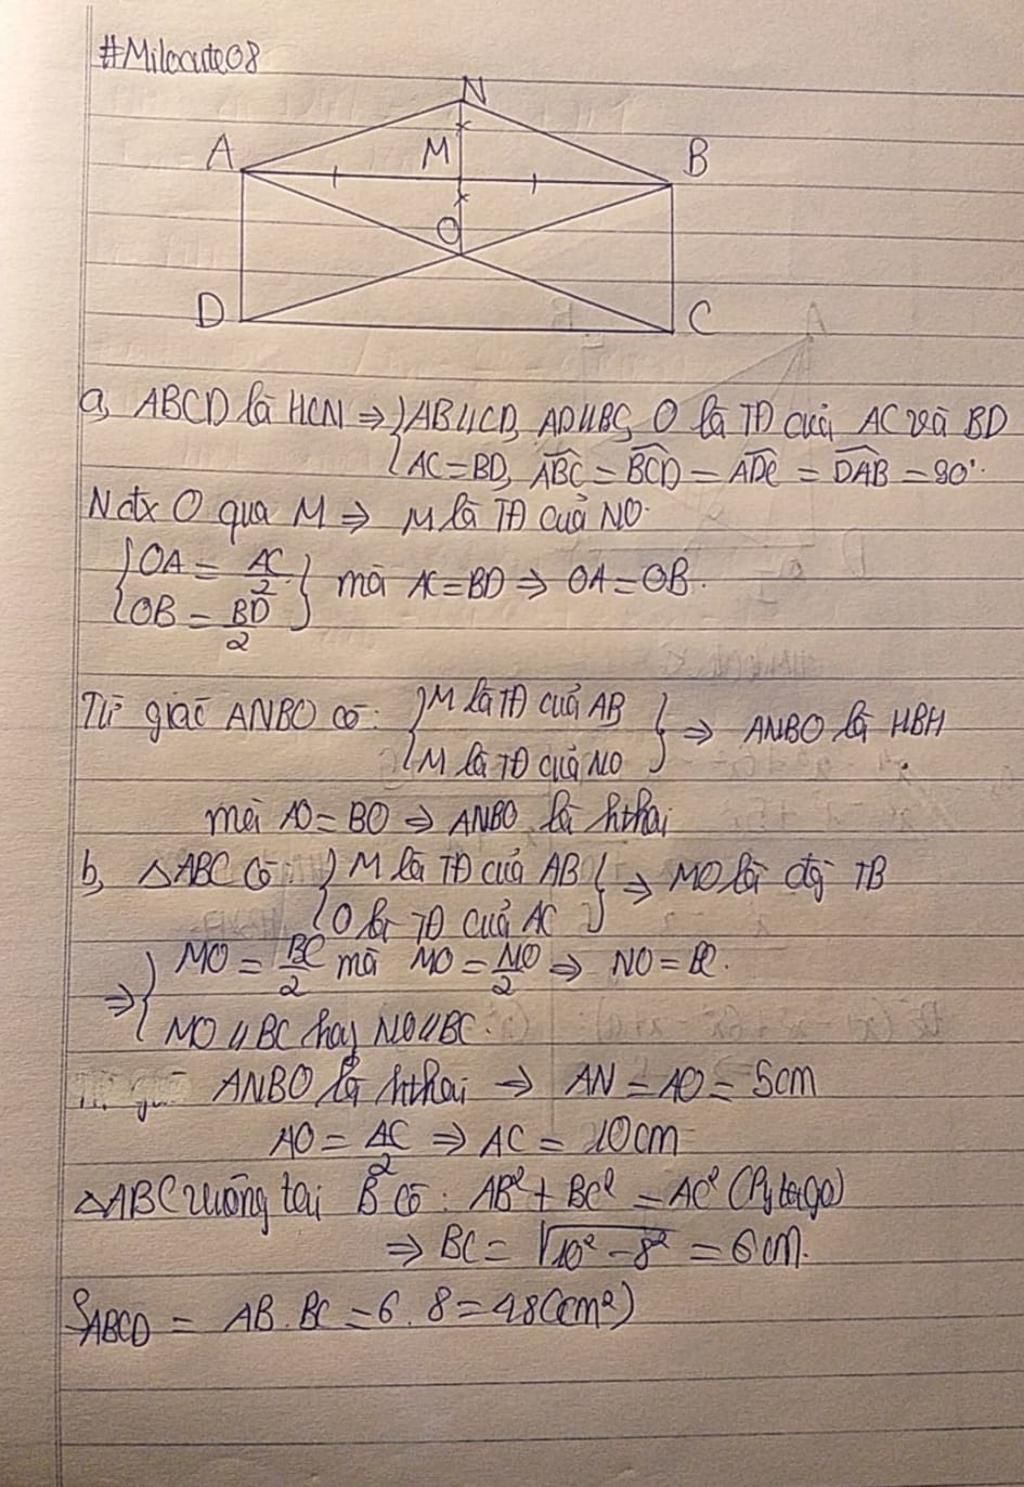 #Milocute08
N
A
M
B
O
D
C
a, ABCD là HCN ⇒ { AB//CD, AD//BC, O là TĐ của AC và BD
AC = BD, ABC = BCD = ADC = DAB = 90°.
N đx O qua M ⇒ M là TĐ của NO.
{ OA = AC/2
OB = BD/2 } mà AC = BD ⇒ OA = OB.
Tứ giác ANBO có: { M là TĐ của AB
M là TĐ của NO } ⇒ ANBO là HBH
mà AO = BO ⇒ ANBO là hthoi
b, △ABC có: { M là TĐ của AB
O là TĐ của AC } ⇒ MO là đg TB
⇒ { MO = BC/2 mà MO = NO/2 ⇒ NO = BC.
MO // BC hay NO // BC.
ANBO là hthoi ⇒ AN = AO = 5cm
AO = AC/2 ⇒ AC = 10cm
△ABC vuông tại B có: AB² + BC² = AC² (Pytago)
⇒ BC = √10² - 8² = 6cm.
SABCD = AB. BC = 6. 8 = 48 (cm²)